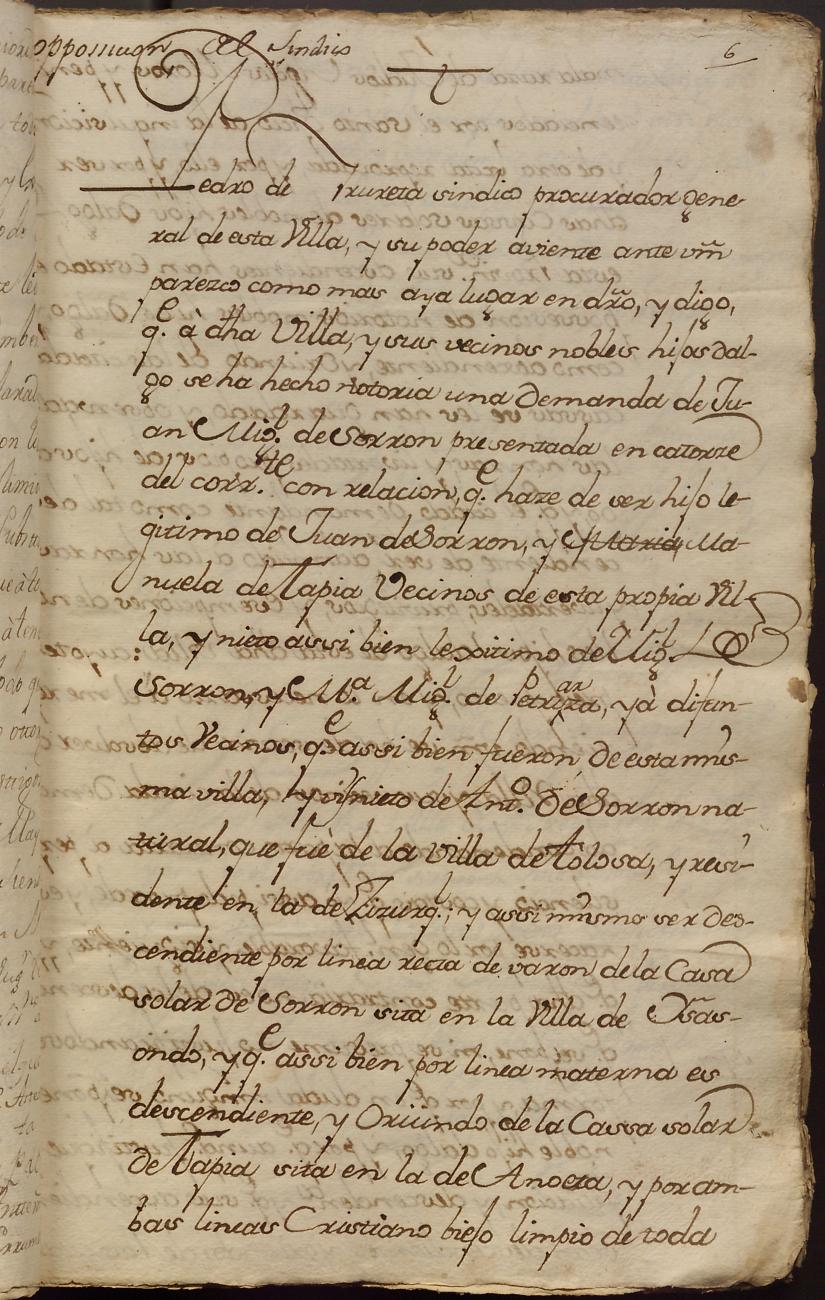 opposicion del sindico
6
Pedro de Irureta sindico procurador gene-
ral de esta Villa, y su poder aviente ante vm̃
parezco como mas aya lugar en dr̃o, y digo,
q.e à dha Villa, y sus vecinos nobles hijos dal-
go se ha hecho notoria una Demanda de Ju-
an Mig.l de Sorron presentada en catorze
del corr.te con relación, q.e haze de ser hijo le-
gitimo de Juan de Sorron, y Maria, Ma-
nuela de Tapia Vecinos de esta propia Vil-
la, y nieto assi bien legitimo de Mig.l de
Sorron, y M.a Mig.l de Petrizarza, yà difun-
tos Vecinos, q.e assi bien fueron de esta mis-
ma villa, y visnieto de Ant.o de Sorron na-
tural, que fuè de la Villa de Tolosa, y resi-
dente en la de Zizurq.l, y assi mismo ser des-
cendiente por linea recta de varon de la Casa
solar de Sorron sita en la Villa de Ysas-
ondo, y q.e assi bien por linea materna es
descendiente, y Oriundo de la Cassa solar
de Tapia sita en la de Anoeta, y por am-
bas lineas Cristiano biejo limpio de toda